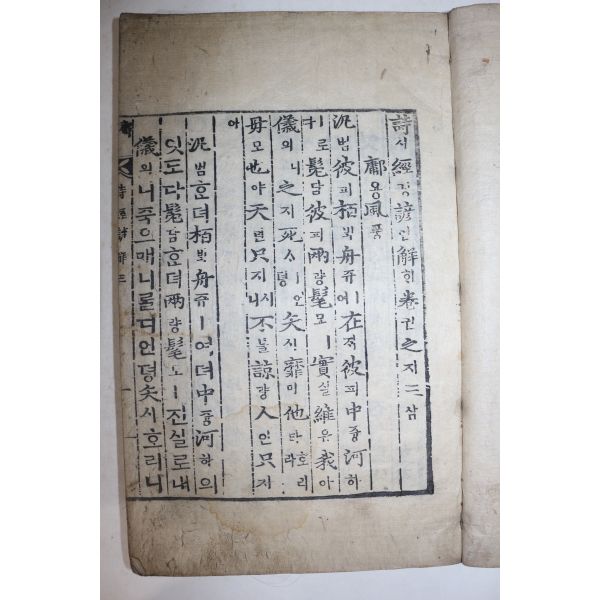 詩시經경諺언解ᄒᆡ卷권之지三삼
鄘용風풍
汎범彼피栢ᄇᆡᆨ舟쥬ㅣ여在ᄌᆡ彼피中듕河하
ㅣ로髧담彼피兩량髦모ㅣ實실維유我아
儀의니之지死ᄉᆞㅣ언뎡矢시靡미他타호리라
母모也야天텬只지시니不블諒량人인只지
아
汎범ᄒᆞᆫ뎌栢ᄇᆡᆨ舟쥬ㅣ여뎌中듕河하의
잇도다髧담ᄒᆞᆫ뎌兩량髦모ㅣ진실로내
儀의니죽으매니를디언뎡矢시호리니
詩經諺解三